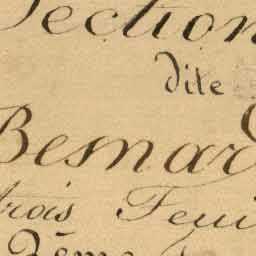 Section
dite
Besnar
trois Feui
2ème